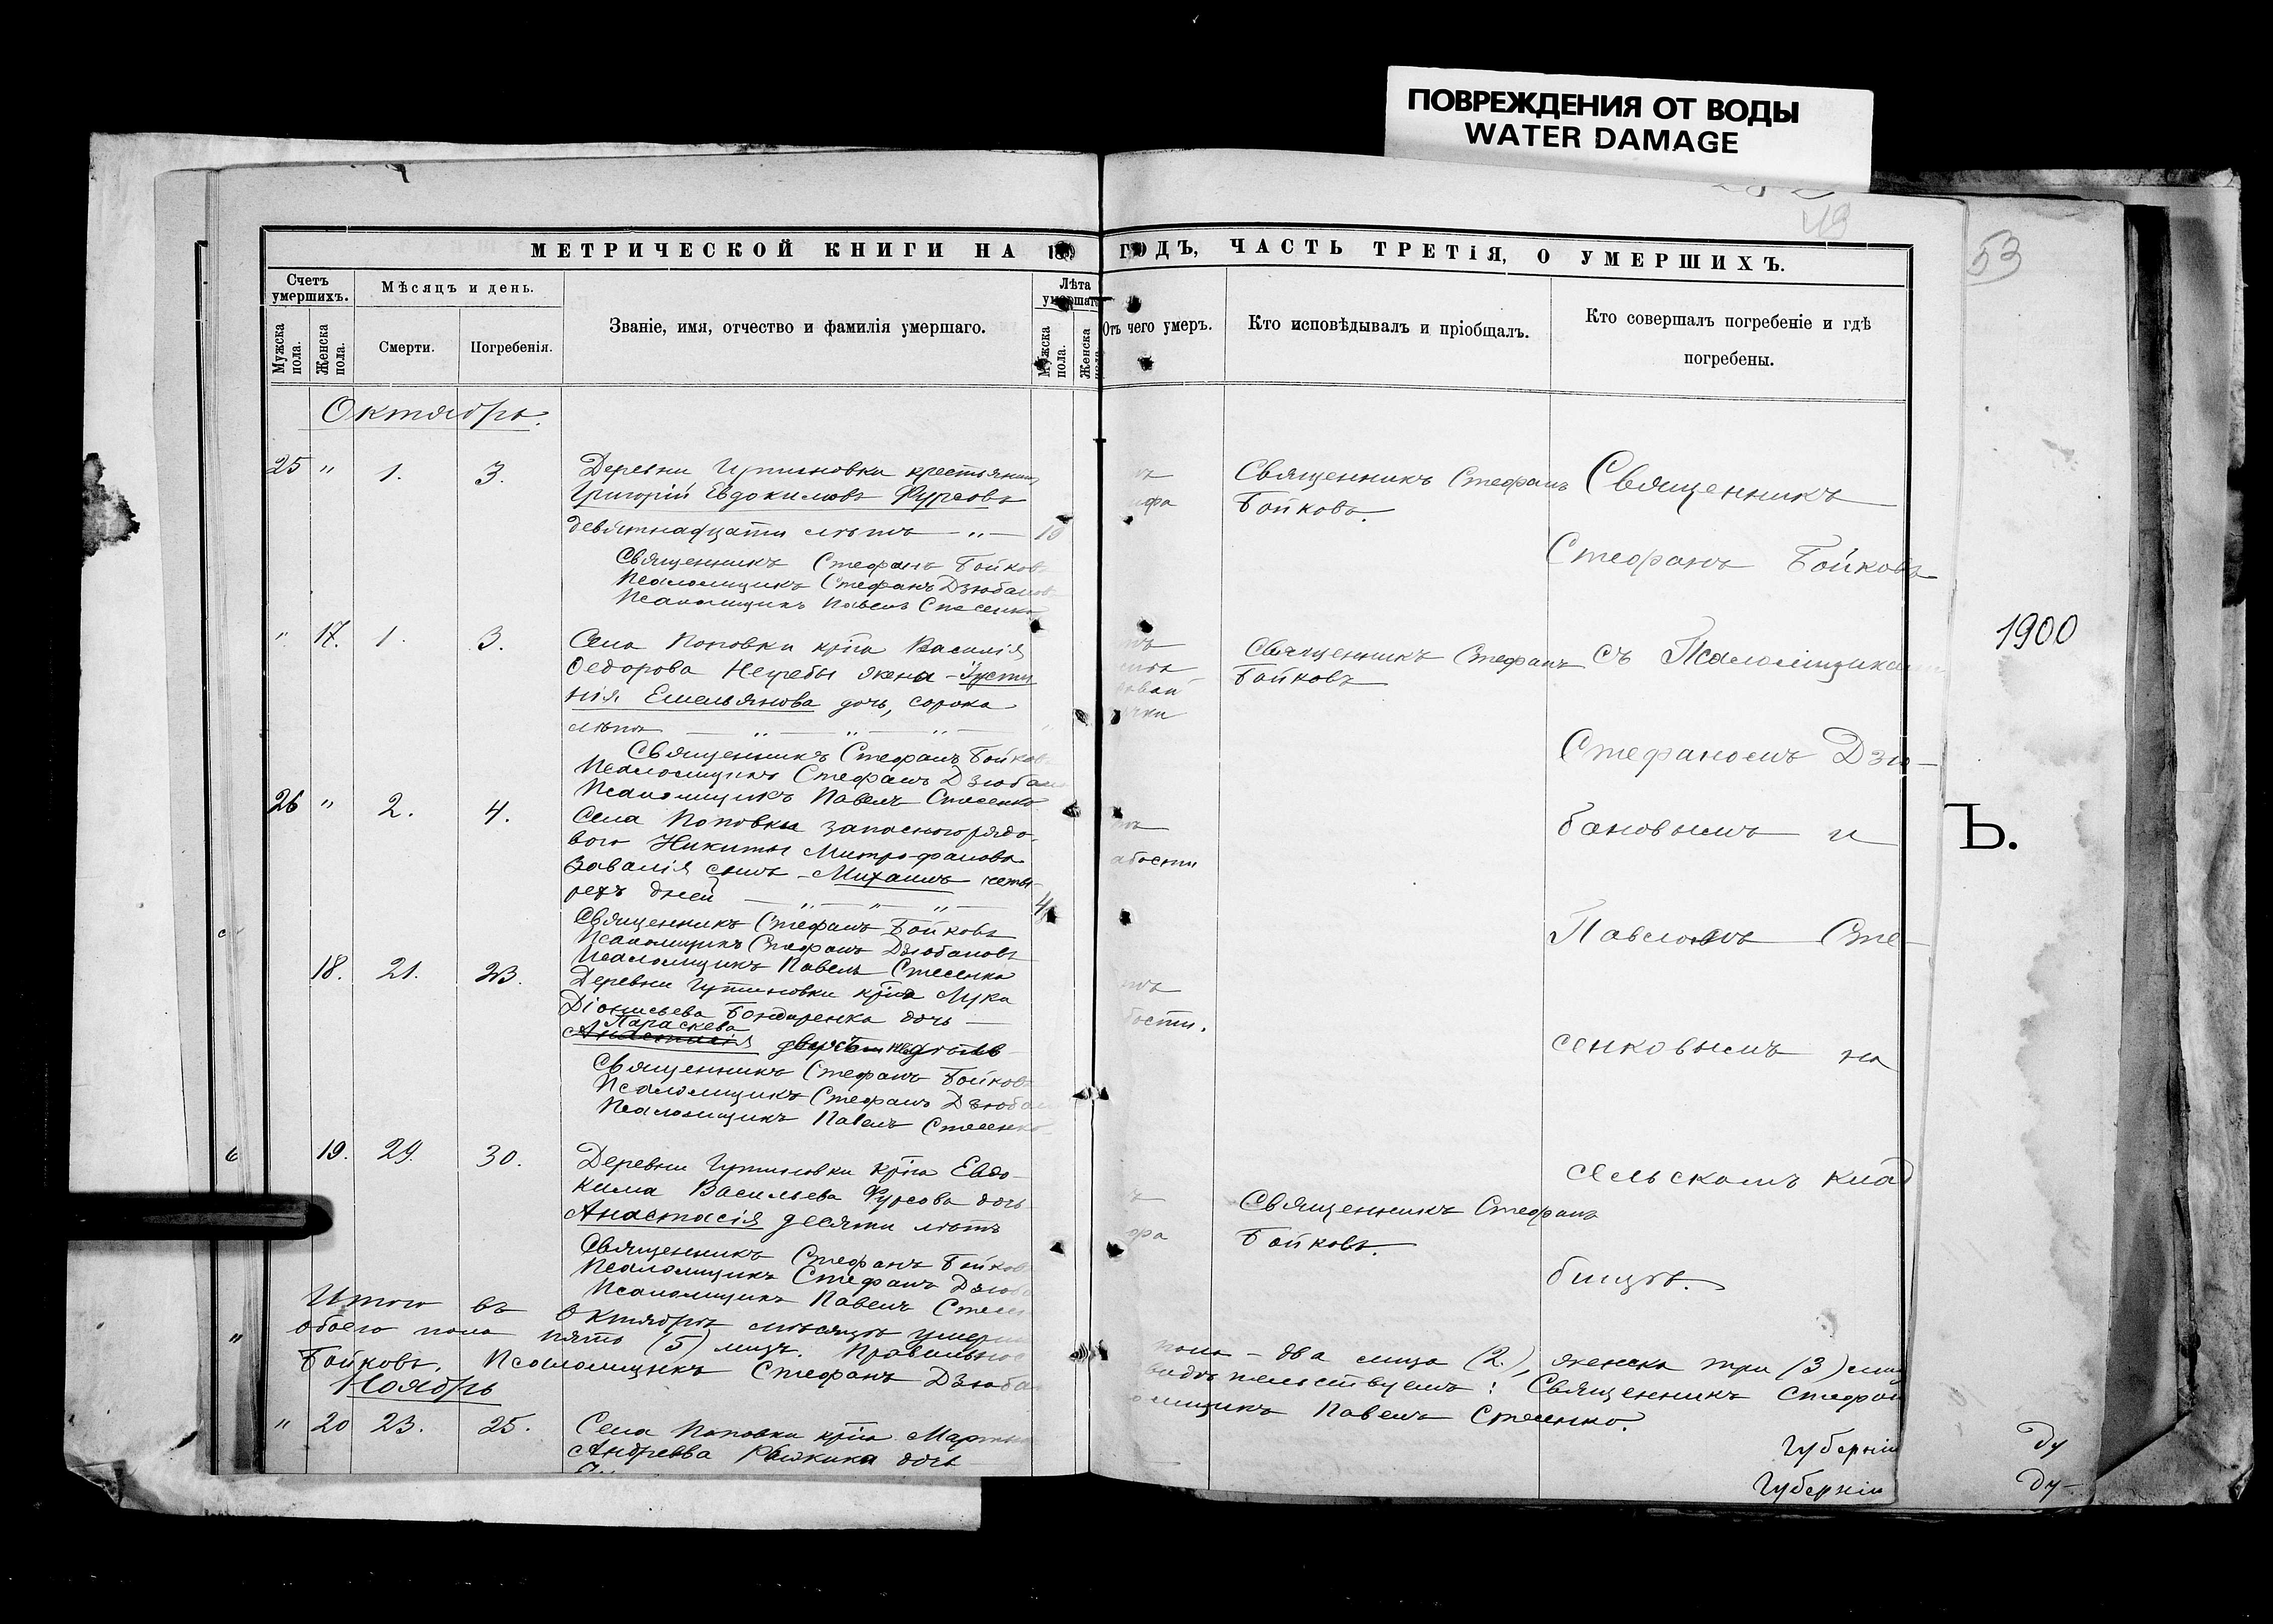 ПОВРЕЖДЕНИЯ ОТ ВОДЫ
WATER DAMAGE
49
53
МЕТРИЧЕСКОЙ КНИГИ НА 1 ГОДЪ, ЧАСТЬ ТРЕТІЯ, О УМЕРШИХЪ.
Счетъ умершихъ.
Мѣсяцъ и день.
Званіе, имя, отчество и фамилія умершаго.
Лѣта умершаго
Отъ чего умеръ.
Кто исповѣдывалъ и пріобщалъ.
Кто совершалъ погребеніе и гдѣ
погребены.
Мужска пола.
Женска пола.
Смерти.
Погребенія.
Мужска пола.
Женска
Октябрь.
25 " 1. 3. Деревни крестьянинъ
Григорій Евдокимовъ Фурсовъ
девятнадцати лѣтъ — " —
Священникъ Стефанъ Бойковъ
Псаломщикъ Стефанъ Дзюбановъ
Псаломщикъ Павелъ Стесенко
Священникъ Стефанъ
Бойковъ.
" 17. 1. 3. Села Поповки кр҃на Василія
Федорова Нетребы жена – Іусти
нія Емельянова дочь, сорока
лѣтъ — " — " — " —
Священникъ Стефанъ Бойковъ
Псаломщикъ Стефанъ
Псаломщикъ Павелъ Стесенко
Священникъ Стефанъ
Бойковъ
26 " 2. 4. Села Поповки запасного рядо-
вого Никиты Митрофанова
Завалія сынъ – Михаилъ четы-
рехъ дней — " — " — " — 4
Священникъ Стефанъ Бойковъ
Псаломщикъ Стефанъ Дзюбановъ
Псаломщикъ Павелъ Стесенко
18. 21. 23. Деревни кр҃на Лука
Діонисьева Бондаренка дочь —
Параскева
Анастасія
Священникъ Стефанъ Бойковъ
Псаломщикъ Стефанъ
Псаломщикъ Павелъ Стесенко
19. 29. 30. Деревни кр҃на Евдо-
кима Васильева Фурсова дочь
Анастасія десяти лѣтъ
Священникъ Стефанъ Бойковъ
Псаломщикъ Стефанъ
Псаломщикъ Павелъ
Священникъ Стефанъ
Бойковъ.
Священникъ
Стефанъ Бойковъ
съ Псаломщиками
Стефаномъ Дзю-
бановымъ и
Павломъ Сте-
сенковымъ на
сельскомъ клад
бищѣ.
Итого въ Октябрѣ мѣсяцѣ умерло
пола – два лица (2.), женска три (3) лица
обоего пола пять (5) лицъ.
: Священникъ Стефанъ
Бойковъ. Псаломщикъ Стефанъ
Павелъ Стесенко.
Ноябрь
" 20 23. 25. Села Поповки кр҃на
Андреева Рыжкина дочь
Губерніи
Губерніи
1900
Ъ.
Ду
Ду-